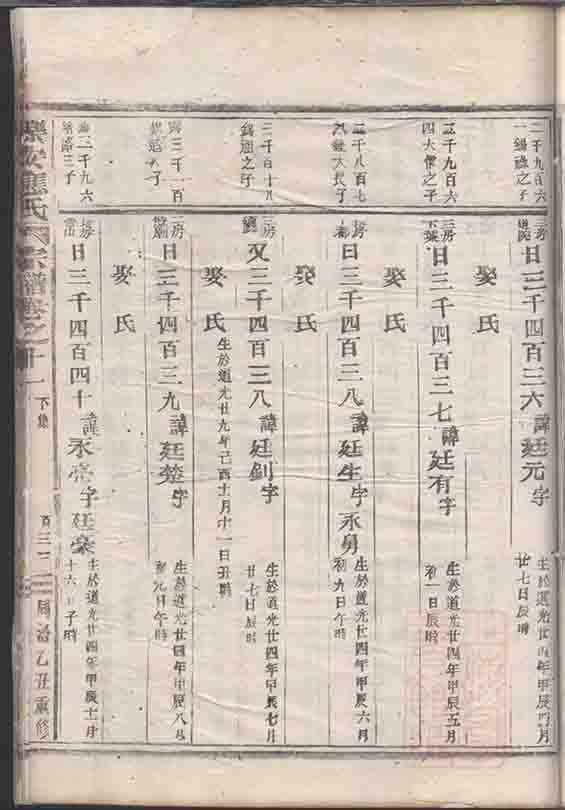 三千九百六
之子
三房
日三千四百三六諱廷元字
生於道光廿四年甲辰四月
廿七日辰時
娶氏
三千九百六
四大傑之子
三房
下葉
日三千四百三七諱廷有字
生於道光廿四年甲辰五月
初一日辰時
娶氏
三千八百七
大長子
房
日三千四百三八諱廷生字永勇
生於道光廿四年甲辰六月
初九日午時
娶氏
三千百十八
之子
三房
又三千四百三八諱廷釗字
生於道光廿四年甲辰七月
廿七日辰時
娶氏
生於道光廿九年己酉十一月十一日丑時
三千一百
之子
三房
日三千四百三九諱廷楚字
生於道光廿四年甲辰八月
初九日午時
娶氏
二千九六
三子
房
日三千四百四十諱永亮字廷豪
生於道光廿四年甲辰十一月
十六日子時
樂安蔣氏宗譜卷之十一
下集
百三二
同治乙丑重修